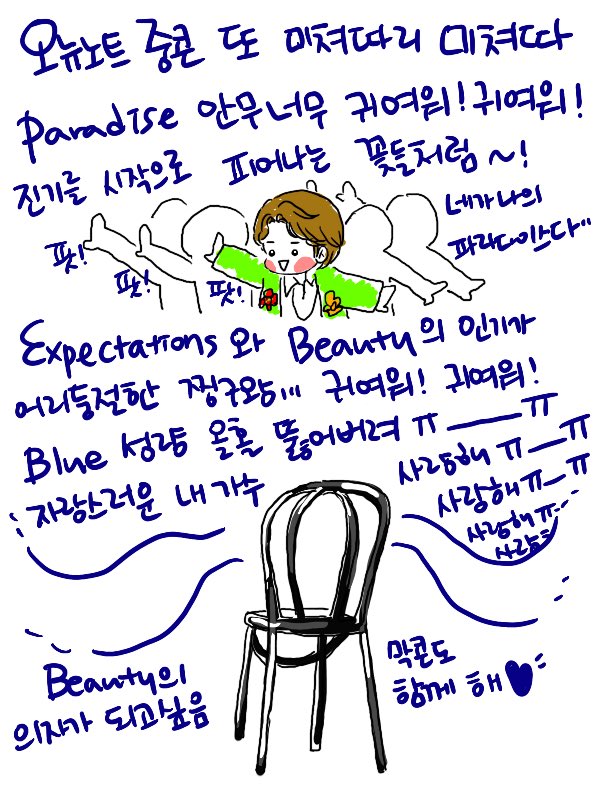 오뉴노트 중콘 또 미쳐따리 미쳐따
Paradise 안무너무 귀여워! 귀여워!
진기를 시작으로 피어나는 꽃들처럼~!
네가 나의
파라다이스다"
팟!
팟!
팟!
Expectations 와 Beauty의 인기가
어리둥절한 찡구왕... 귀여워! 귀여워!
Blue 성량 올홀 뚫어버려 ㅠ——ㅠ
자랑스러운 내 가수
사랑해 ㅠ—ㅠ
사랑해ㅠ—ㅠ
사랑해ㅠ..
사랑ㅎ
Beauty의
의자가 되고싶음
막콘도
함께 해♥